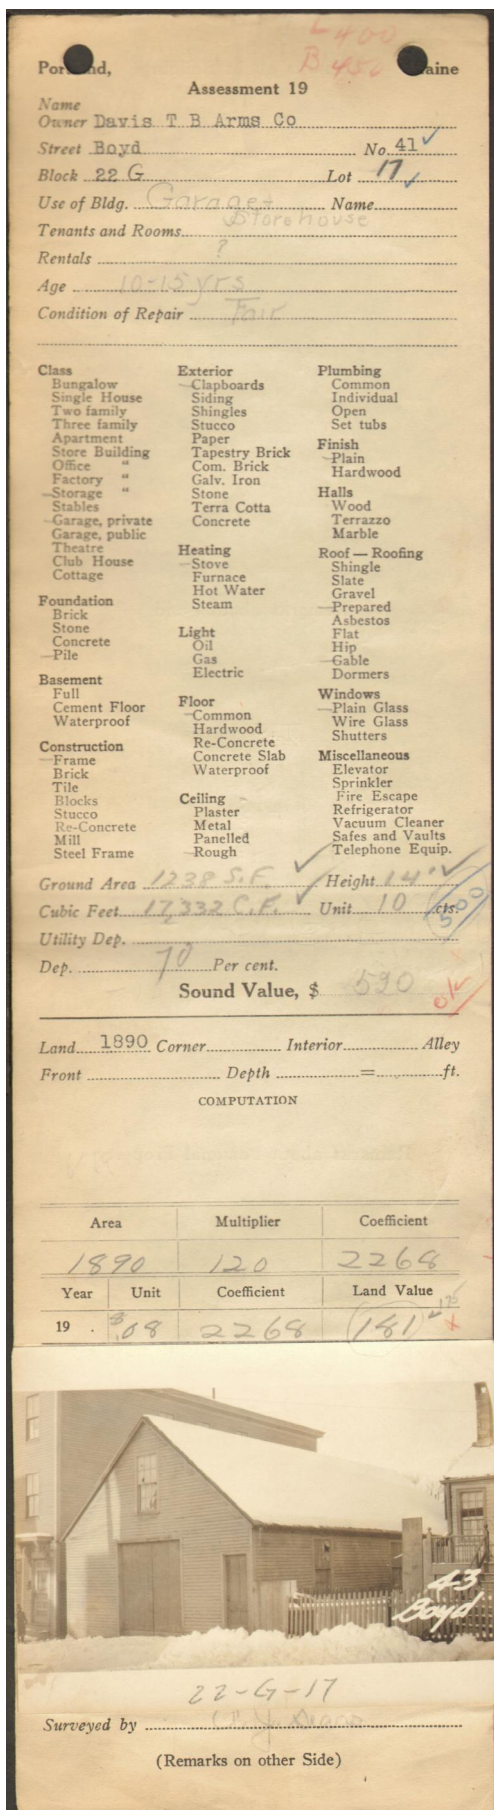 L 400
B 450
Portland, Maine
Assessment 19
Name
Owner Davis T B Arms Co
Street Boyd No. 41 ✓
Block 22 G Lot 17 ✓
Use of Bldg. Garage & Name
Storehouse
Tenants and Rooms
Rentals ?
Age 10-15 yrs
Condition of Repair Fair
Class
Bungalow
Single House
Two family
Three family
Apartment
Store Building
Office "
Factory "
Storage "
Stables
Garage, private
Garage, public
Theatre
Club House
Cottage
Foundation
Brick
Stone
Concrete
Pile
Basement
Full
Cement Floor
Waterproof
Construction
Frame
Brick
Tile
Blocks
Stucco
Re-Concrete
Mill
Steel Frame
Exterior
Clapboards
Siding
Shingles
Stucco
Paper
Tapestry Brick
Com. Brick
Galv. Iron
Stone
Terra Cotta
Concrete
Heating
Stove
Furnace
Hot Water
Steam
Light
Oil
Gas
Electric
Floor
Common
Hardwood
Re-Concrete
Concrete Slab
Waterproof
Ceiling
Plaster
Metal
Panelled
Rough
Plumbing
Common
Individual
Open
Set tubs
Finish
Plain
Hardwood
Halls
Wood
Terrazzo
Marble
Roof — Roofing
Shingle
Slate
Gravel
Prepared
Asbestos
Flat
Hip
Gable
Dormers
Windows
Plain Glass
Wire Glass
Shutters
Miscellaneous
Elevator
Sprinkler
Fire Escape
Refrigerator
Vacuum Cleaner
Safes and Vaults
Telephone Equip.
Ground Area 1238 S.F. ✓ Height 14' ✓
Cubic Feet 17,332 C.F. ✓ Unit 10 cts. 500
Utility Dep.
Dep. 70 Per cent.
Sound Value, $ 520
O.K.
Land 1890 Corner Interior Alley
Front Depth = ft.
COMPUTATION
Area Multiplier Coefficient
1890 120 2268
Year Unit Coefficient Land Value
19 . $.08 2268 181 ✓
43
Boyd
22-G-17
Surveyed by
(Remarks on other Side)